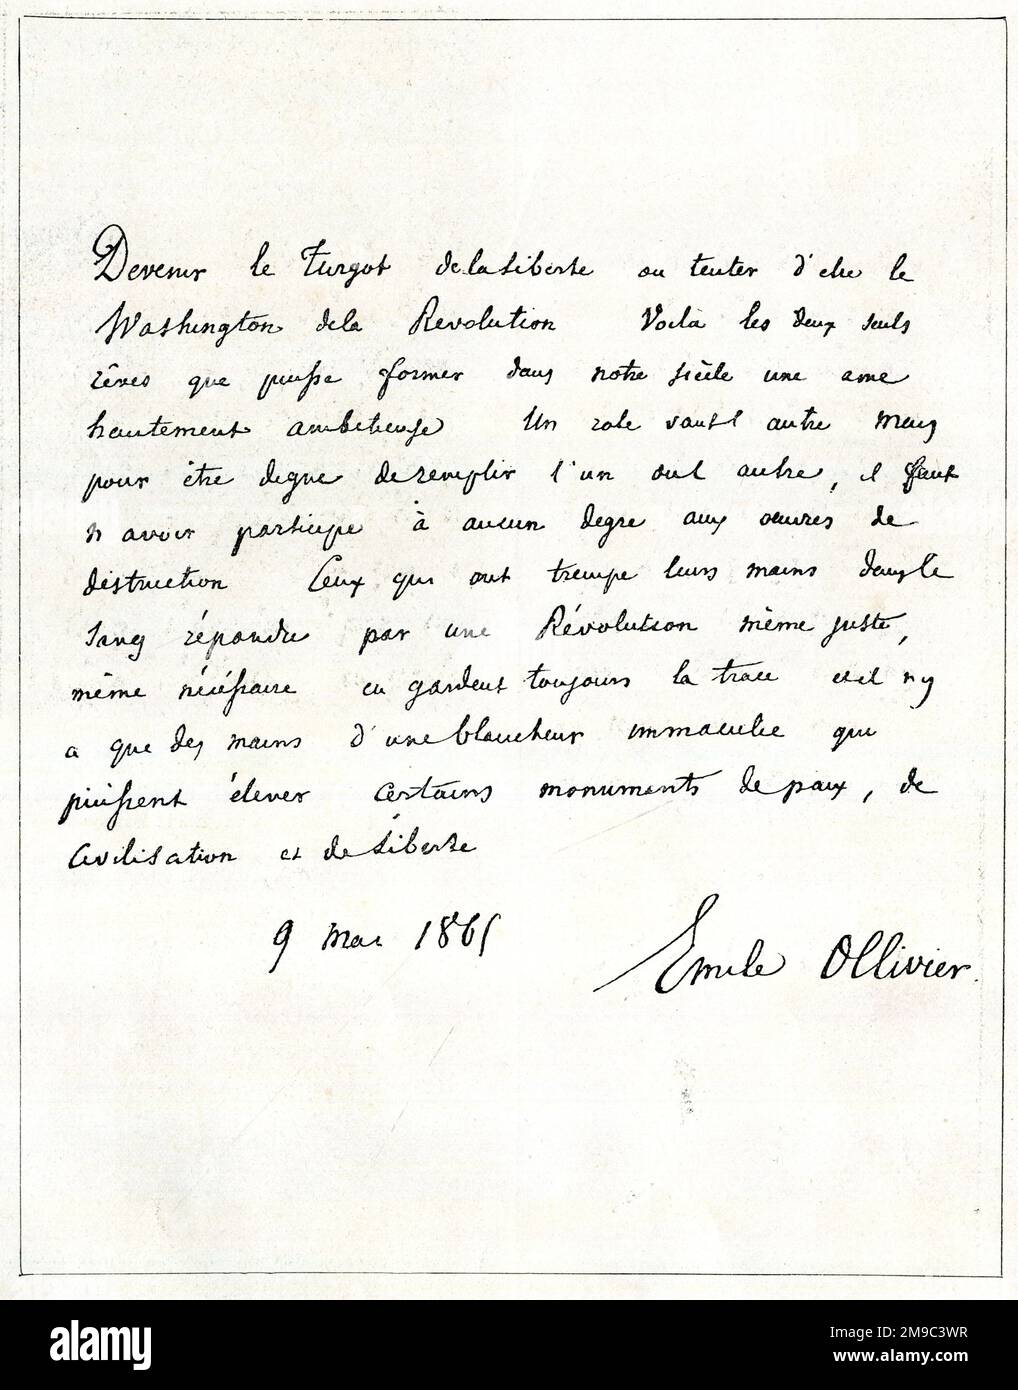 Devenir le Turgot de la Liberte ou tenter d'etre le
Washington de la Revolution Voilà les deux seuls
rêves que puisse former dans notre siècle une ame
hautement ambitieuse Un role vaut l autre Mais
pour être digne de remplir l'un ou l autre, il faut
n avoir participe à aucun degre aux œuvres de
destruction Ceux qui ont trempe leurs mains dans le
sang répandu par une Révolution même juste,
même nécéssaire en gardent toujours la trace et il n y
a que des mains d'une blancheur immaculee qui
puissent élever certains monuments de paix, de
Civilisation et de Liberte
9 Mai 1865
Emile Ollivier
a
alamy
Image ID: 2M9C3WR
www.alamy.com